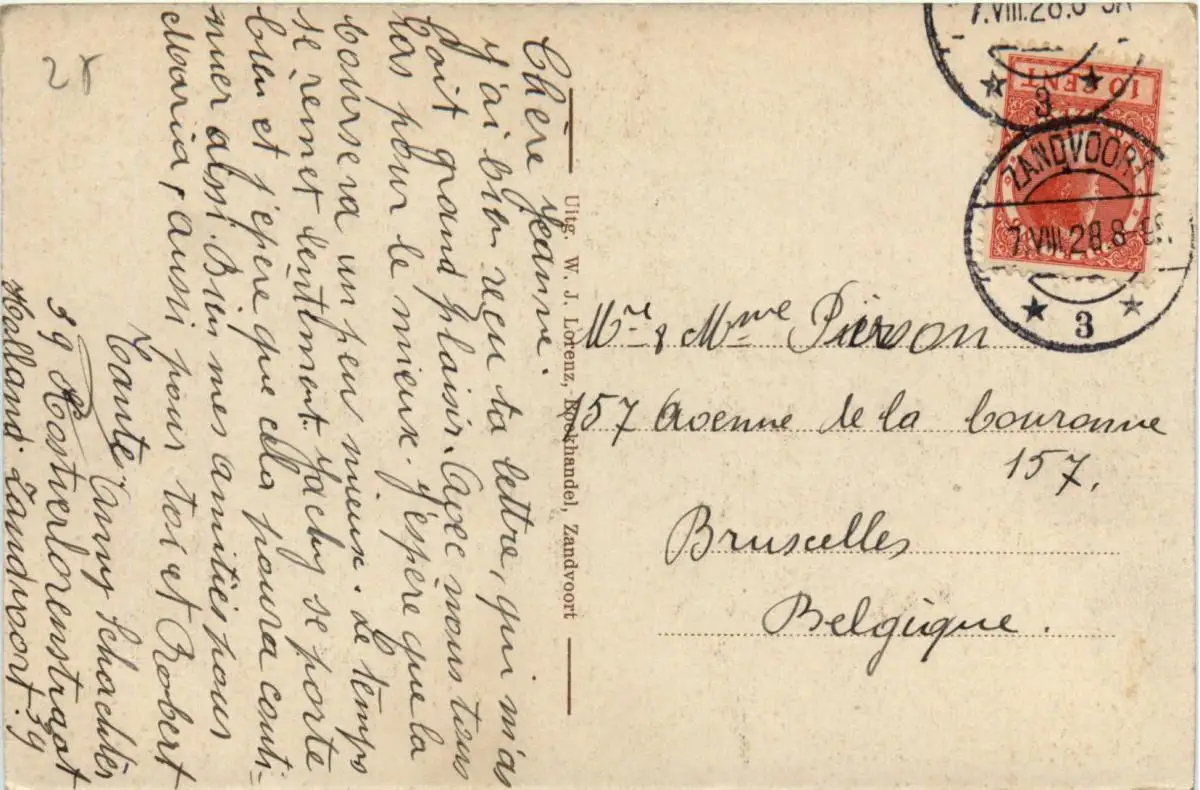 Chère Jeanne.
J'ai bien reçu ta lettre, qui m'as
fait grand plaisir. Avec nous tous
pour le mieux. j'espere que la
bourse va un peu mieux. Le temps
se remet lentement. Jacky se porte
bien et j'epere que cela poura conti-
nuer ainsi. Bien mes amitiés pour
Maria, aussi pour toi et Robert
Tante Anny Schachtes
39 Kosterlorenstraat
Holland. Zandvoort. 39
28
Uitg. W. J. Lorenz, Boekhandel, Zandvoort
7.VIII.28.8
3
10 CENT
ZANDVOORT
7.VIII.28.8-9
3
Mr & Mme Pierson
157 Avenue de la Couronne
157.
Bruxelles
Belgique.